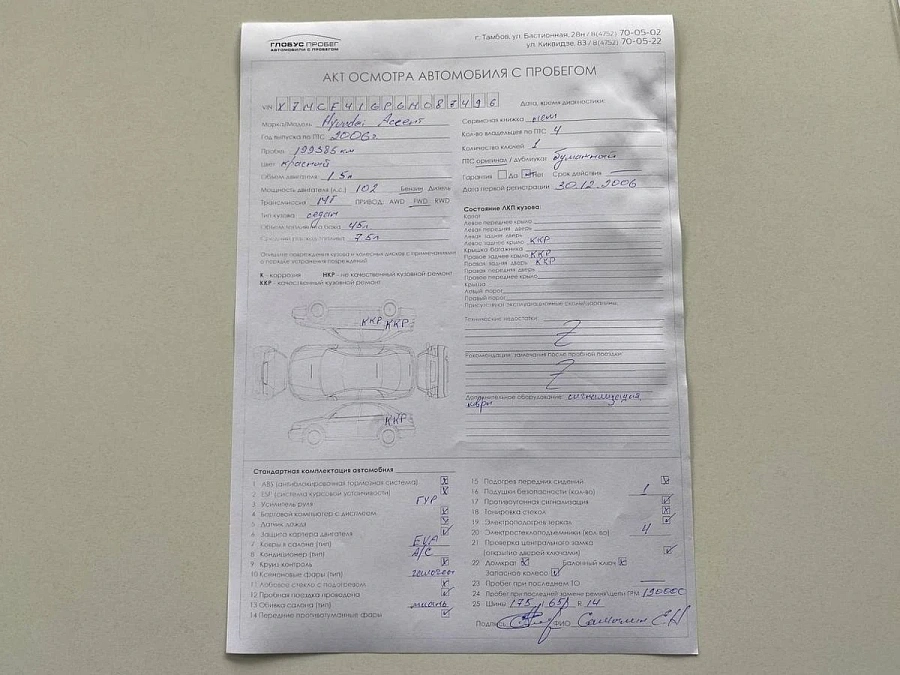 ГЛОБУС ПРОБЕГ
АВТОМОБИЛИ С ПРОБЕГОМ
г. Тамбов, ул. Бастионная, 28н / 8(4752) 70-05-02
ул. Киквидзе, 83 / 8(4752) 70-05-22
АКТ ОСМОТРА АВТОМОБИЛЯ С ПРОБЕГОМ
VIN X7MCF41GPGM087496
Марка/Модель Hyundai Accent
Год выпуска по ПТС 2006г
Пробег 199386 км
Цвет красный
Объем двигателя 1.5л
Мощность двигателя (л.с.) 102 Бензин Дизель
Трансмиссия МТ ПРИВОД: AWD FWD RWD
Тип кузова седан
Объем топливного бака 45л
7.5л
Дата, время диагностики:
Сервисная книжка нет
Кол-во владельцев по ПТС 4
Количество ключей 1
ПТС оригинал / дубликат бумажный
Гарантия Да Нет Срок действия
Дата первой регистрации 30.12.2006
К - коррозия НКР - не качественный кузовной ремонт
ККР - качественный кузовной ремонт
ККР ККР
ККР
Состояние ЛКП кузова:
Капот
Левое переднее крыло
Левая передняя дверь
Левая задняя дверь
Левое заднее крыло ККР
Крышка багажника
Правое заднее крыло ККР
Правая задняя дверь ККР
Правая передняя дверь
Правое переднее крыло
Крыша
Левый порог
Правый порог
Присутствуют эксплуатационные сколы/царапины.
Технические недостатки:
Рекомендации, замечания после пробной поездки:
Дополнительное оборудование: сигнализация,
ковры
Стандартная комплектация автомобиля
1 ABS (антиблокировочная тормозная система)
2 ESP (система курсовой устойчивости)
3 Усилитель руля ГУР
4 Бортовой компьютер с дисплеем
5 Датчик дождя
6 Защита картера двигателя
7 Ковры в салоне (тип) EVA
8 Кондиционер (тип) A/C
9 Круиз контроль
10 Ксеноновые фары (тип) галоген
11 Лобовое стекло с подогревом
12 Пробная поездка проведена
13 Обивка салона (тип) ткань
14 Передние противотуманные фары
15 Подогрев передних сидений
16 Подушки безопасности (кол-во) 1
17 Противоугонная сигнализация
18 Тонировка стекол
19 Электроподогрев зеркал
20 Электростеклоподъемники (кол-во) 4
21 Проверка центрального замка
(открытие дверей ключами)
22 Домкрат Балонный ключ
Запасное колесо
23 Пробег при последнем ТО
24 Пробег при последней замене ремня/цепи ГРМ
25 Шины 175 / 65 R 14
Подпись ФИО